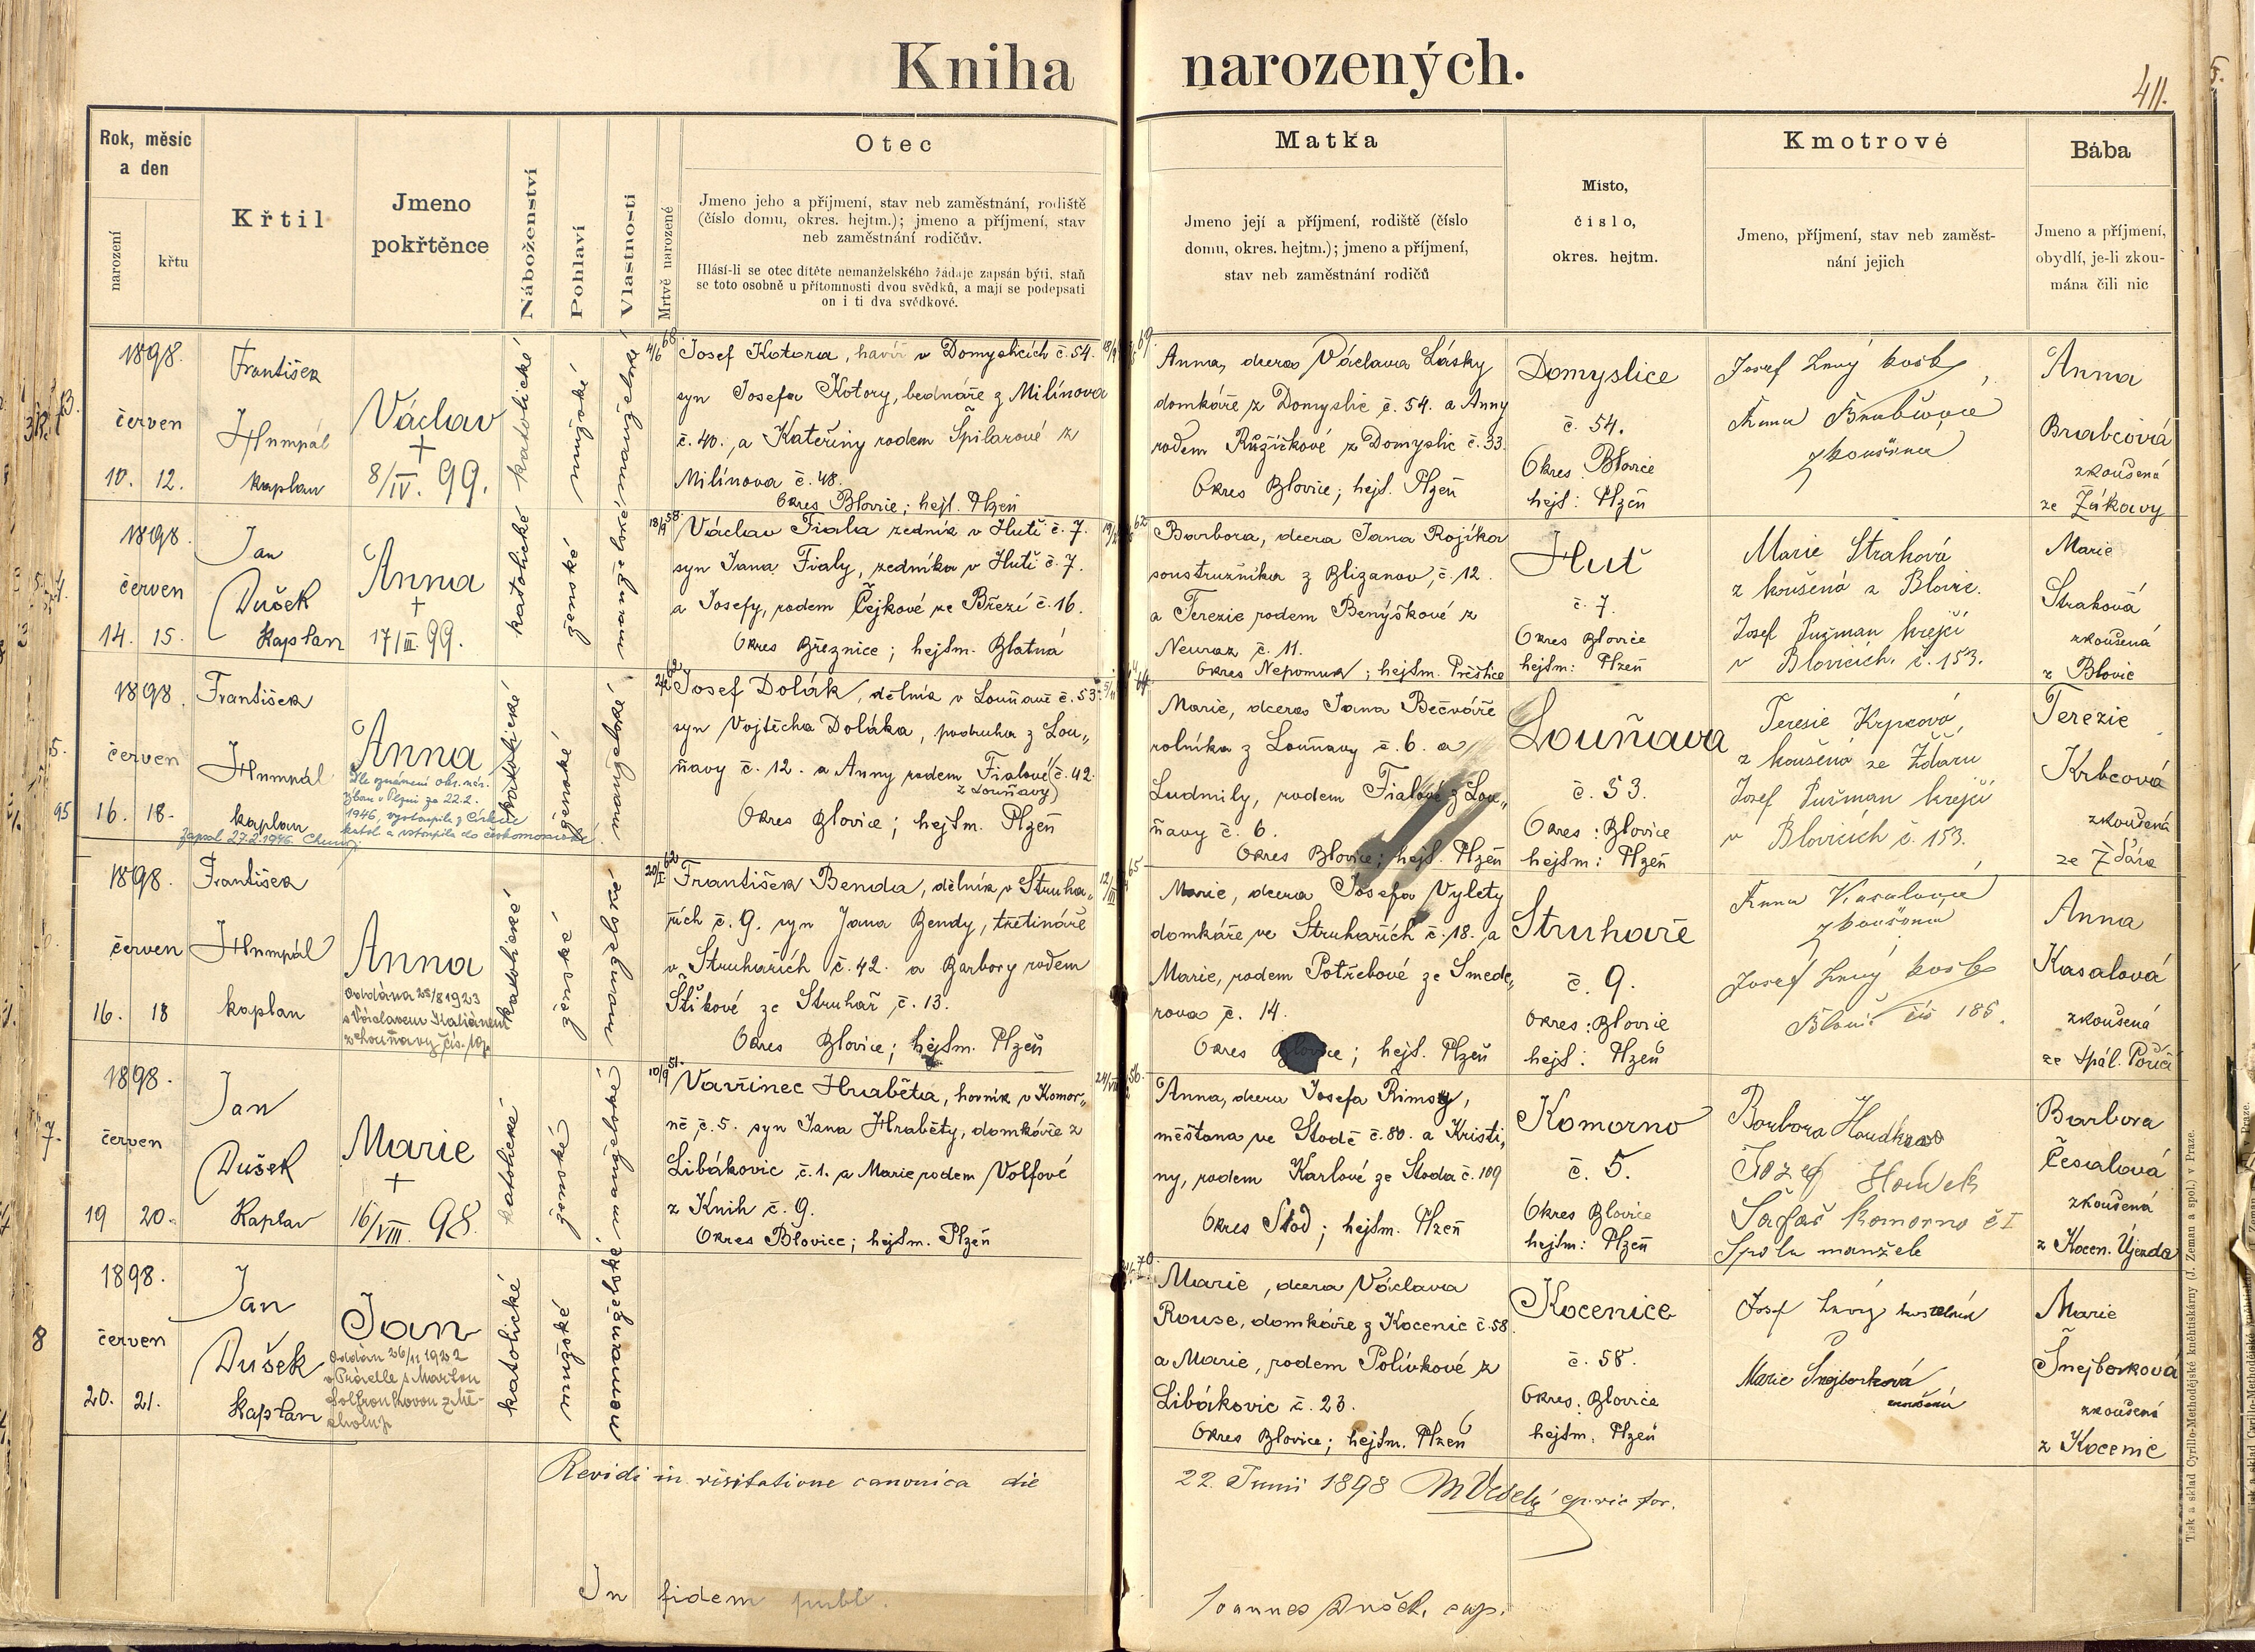 Kniha narozených.
411.
Rok, měsíc
a den
narození
křtu
Křtil
Jmeno
pokřtěnce
Náboženství
Pohlaví
Vlastnosti
Mrtvě narozené
Otec
Jmeno jeho a příjmení, stav neb zaměstnání, rodiště
(číslo domu, okres. hejtm.); jmeno a příjmení, stav
neb zaměstnání rodičův.
Hlásí-li se otec dítěte nemanželského žádaje zapsán býti, staň
se toto osobně u přítomnosti dvou svědků, a mají se podepsati
on i ti dva svědkové.
Matka
Jmeno její a příjmení, rodiště (číslo
domu, okres. hejtm.); jmeno a příjmení,
stav neb zaměstnání rodičů
Místo,
číslo,
okres. hejtm.
Kmotrové
Jmeno, příjmení, stav neb zaměst-
nání jejich
Bába
Jmeno a příjmení,
obydlí, je-li zkou-
mána čili nic
1898.
červen
10. 12.
František
Humpál
kaplan
Václav
+
8/IV. 99.
katolické
mužské
manželské
4/6 68
Josef Kotora, havíř v Domyslicích č. 54.
syn Josefa Kotory, bednáře z Milínova
č. 40. a Kateřiny rodem Špilarové z
Milínova č. 48.
Okres Blovice; hejt. Plzeň
Anna, dcera Václava Lásky
domkáře z Domyslic č. 54. a Anny
rodem Růžičkové z Domyslic č. 33.
Okres Blovice; hejt. Plzeň
Domyslice
č. 54.
Okres Blovice
hejt: Plzeň
Josef Levý
Anna Brabcová
zkoušená
Anna
Brabcová
zkoušená
ze Žákavy
1898.
červen
14. 15.
Jan
Dušek
Kaplan
Anna
+
17/III. 99.
katolické
ženské
manželské
18/9 58.
Václav Fiala zedník v Huti č. 7.
syn Jana Fialy, zedníka v Huti č. 7.
a Josefy, rodem Čejkové ze Březí č. 16.
Okres Březnice; hejtm. Blatná
Barbora, dcera Jana Rojíka
soustružníka z Blizanov, č. 12.
a Terezie rodem Benýškové z
Neuraz č. 11.
Okres Nepomuk; hejtm. Přeštice
Huť
č. 7.
Okres Blovice
hejtm: Plzeň
Marie Straková
zkoušená z Blovic.
Josef Pužman krejčí
v Blovicích. č. 153.
Marie
Straková
zkoušená
z Blovic
1898.
červen
16. 18.
František
Humpál
kaplan
Anna
Dle oznámení okr. nár.
výboru v Plzni ze 22.2.
1946, vystoupila z Církve
katol. a vstoupila do českomoravské.
Zapsal 27.2.1946.
katolické
ženské
manželské
Josef Dolák, dělník v Louňavě č. 53.
syn Vojtěcha Doláka, podruha z Lou„
ňavy č. 12. a Anny rodem Fialové (č. 42.
z Louňavy)
Okres Blovice; hejtm. Plzeň
Marie, dcera Jana Bečváře
rolníka z Louňavy č. 6. a
Ludmily, rodem Fialové z Lou„
ňavy č. 6.
Okres Blovice; hejt. Plzeň
Louňava
č. 53.
Okres: Blovice
hejtm: Plzeň
Teresie Krpcová,
zkoušená ze Ždáru
Josef Pužman krejčí
v Blovicích č. 153.
Terezie
Krbcová
zkoušená
ze Ždára
1898.
červen
16. 18
František
Humpál
kaplan
Anna
Oddána 28/8 1923
s Václavem Italiánem
z Louňavy čís. 19.
katolické
ženské
manželské
20/I 62
František Benda, dělník v Struha„
řích č. 9. syn Jana Bendy, třetináře
v Struhařích č. 42. a Barbory rodem
Štikové ze Struhař č. 13.
Okres Blovice; hejtm. Plzeň
Marie, dcera Josefa Vylety
domkáře ve Struhařích č. 18. a
Marie, rodem Potřebové ze Smede„
rova č. 14.
Okres Blovice; hejt. Plzeň
Struhaře
č. 9.
Okres: Blovice
hejt: Plzeň
Anna Kasalová
zkoušená
Josef Levý
čís 185.
Anna
Kasalová
zkoušená
ze Spál. Poříčí
7.
1898.
červen
19 20.
Jan
Dušek
Kaplan
Marie
+
16/VIII. 98.
katolické
ženské
manželské
10/9 51.
Vavřinec Hraběta, horník v Komor„
ně č. 5. syn Jana Hraběty, domkáře z
Libákovic č. 1. a Marie rodem Volfové
z Knih č. 9.
Okres Blovice; hejtm. Plzeň
Anna, dcera Josefa Rimsy,
měšťana ve Stodě č. 80. a Kristi„
ny, rodem Karlové ze Stoda č. 109
Okres Stod; hejtm. Plzeň
Komorno
č. 5.
Okres Blovice
hejtm: Plzeň
Barbora
Jozef Houdek
Šafař Komorno č I
Spolu manželé
Barbora
Česalová
zkoušená
z Kocen. Újezda
8
1898.
červen
20. 21.
Jan
Dušek
Kaplan
Jan
Oddán 26/11 1922
v Prádle s Martou
katolické
mužské
nemanželské
Marie, dcera Václava
Rouse, domkáře z Kocenic č. 58.
a Marie, rodem Polívkové z
Libákovic č. 23.
Okres Blovice; hejtm. Plzeň
Kocenice
č. 58.
Okres: Blovice
hejtm: Plzeň
Josef Levý kostelník
Marie Šnejborková
zkoušená
Marie
Šnejborková
zkoušená
z Kocenic
Revidi in visitatione canonica die 22. Junii 1898
In fidem publ. Joannes Dušek, cap.
Tisk a sklad Cyrillo-Methodějské knihtiskárny (J. Zeman a spol.) v Praze.